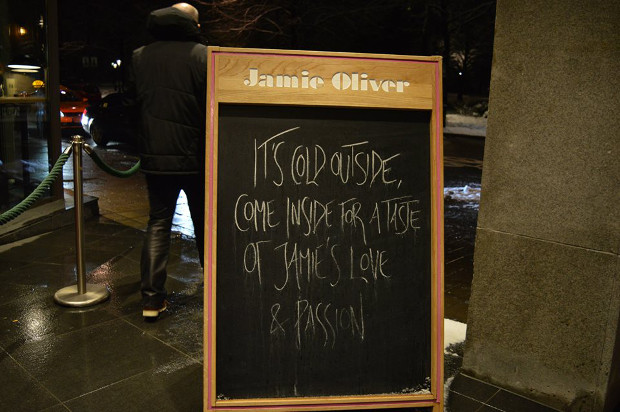 Jamie Oliver
IT'S COLD OUTSIDE,
COME INSIDE FOR A TASTE
OF JAMIE'S LOVE
& PASSION